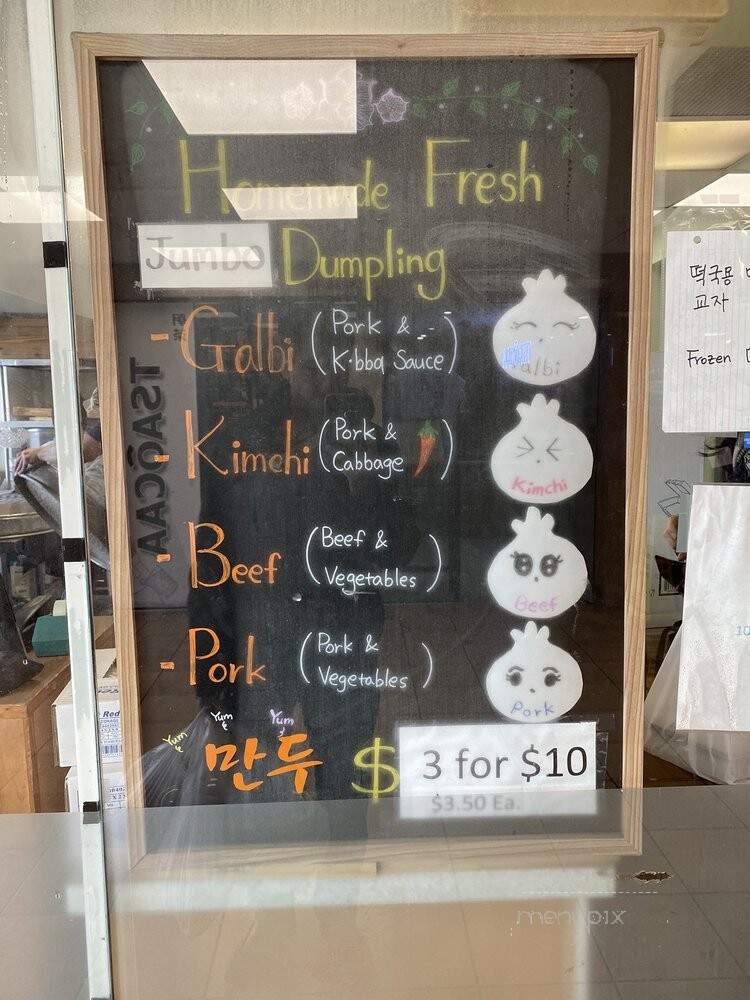 Homemade Fresh
Jumbo Dumpling
- Galbi (Pork & K·bbq Sauce)
Galbi
- Kimchi (Pork & Cabbage)
Kimchi
- Beef (Beef & Vegetables)
Beef
- Pork (Pork & Vegetables)
Pork
Yum & Yum & Yum &
만두 $ 3 for $10
$3.50 Ea.
떡국용
교자
Frozen
TSAOCAA
Red
10
menupix